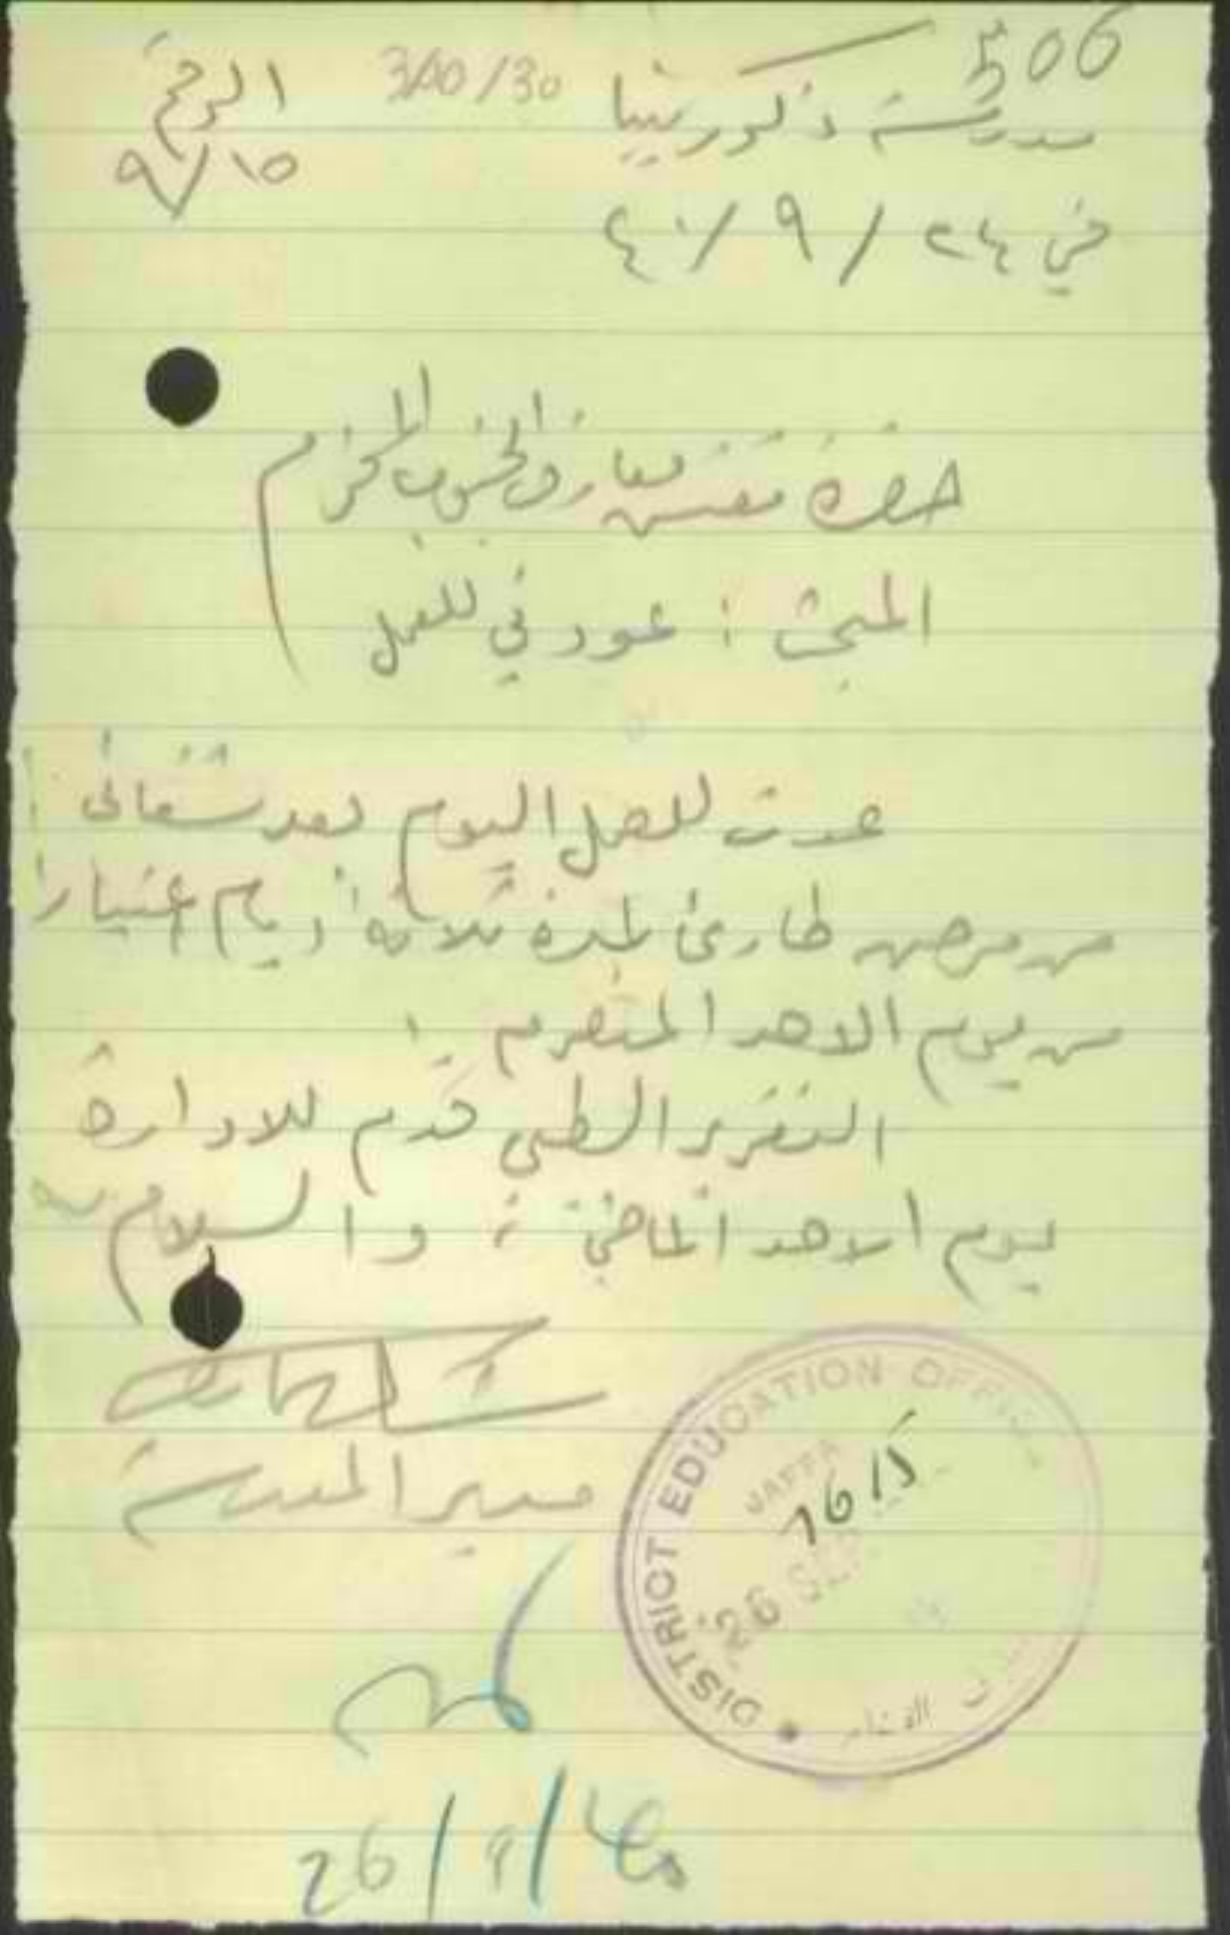 506
مدرسة ذكور يبنا 310/30 الرقم
٩/١٥
في ٢٤ / ٩ / ٤٠
حضرة مفتش معارف الجنوب المحترم
المبحث : عودتي للعمل
عدت للعمل اليوم بعد شفائي
من مرض طارئ لمدة ثلاثة أيام اعتبارا
من يوم الاحد المنصرم .
التقرير الطبي قدم للادارة
يوم الاحد الماضي ، والسلام
مدير المدرسة
DISTRICT EDUCATION OFFICE
JAFFA
26 SEP
26/9/40